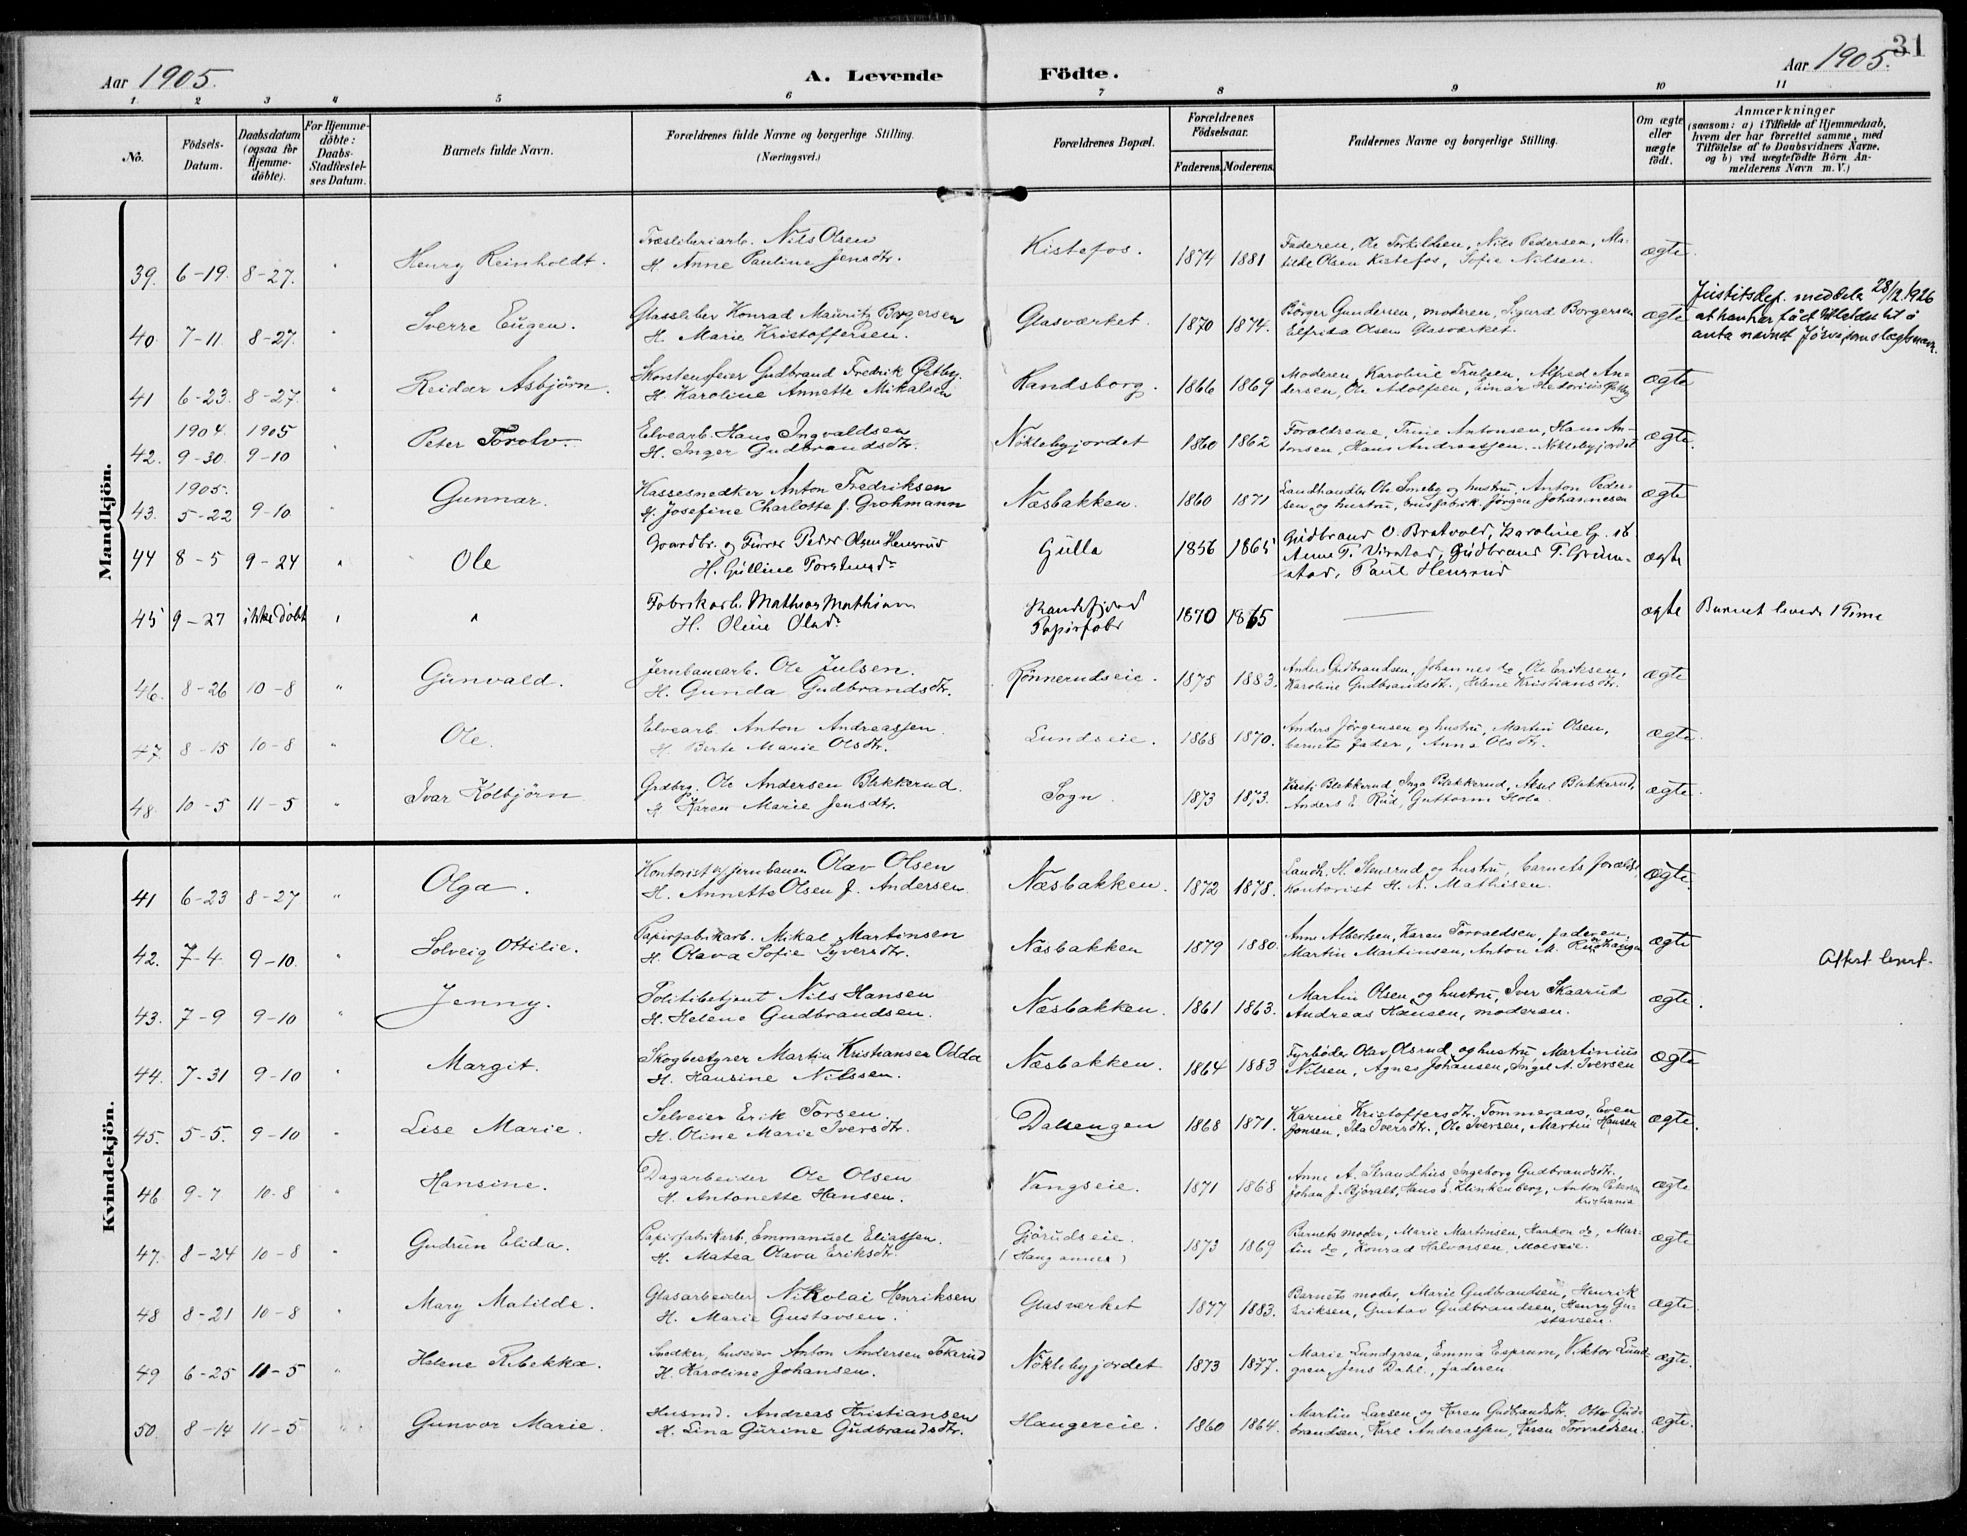 31
Aar 1905.
A. Levende Födte.
Aar 1905.
1. 2 3 4 5 6 7 8 9 10 11
No.
Födsels-Datum.
Daabsdatum (ogsaa for Hjemme-döbte).
For Hjemme-döbte: Daabs-Stadfæstel-ses Datum.
Barnets fulde Navn.
Forældrenes fulde Navne og borgerlige Stilling.
(Næringsvei.)
Forældrenes Bopæl.
Forældrenes Födselsaar.
Faderens. Moderens.
Faddernes Navne og borgerlige Stilling.
Om ægte eller uægte födt.
Anmærkninger
(saasom: a) i Tilfælde af Hjemmedaab,
hvem der har forrettet samme, med
Tilföielse af to Daabsvidners Navne,
og b) ved uægtefödte Börn An-
melderens Navn m.V.)
Mandkjön.
39. 6-19. 8-27. " Henry Reinholdt. Træsliberiarb. Nils Olsen
H. Anne Pauline Jensdtr. Kistefos. 1874 1881 Faderen, Ole Torkildsen, Nils Pedersen, Ma-
tilde Olsen Kistefos, Sofie Nilsen. ægte.
40. 7-11 8-27. Sverre Eugen. Glassliber Konrad Mauritz Borgersen
H. Marie Kristoffersen. Glasværket. 1870 1874. Börger Gundersen, moderen, Sigurd Borgersen
Elfrida Olsen Glasværket. ægte Justitsdep. meddeler 28/12 1926
at han har fåt tilladelse til å
anta navnet som slægtsnavn.
41 6-23. 8-27. " Reidar Asbjörn. Skorstensfeier Gudbrand Fredrik Östby.
H. Karoline Annette Mikalsen Randsborg. 1866 1869 Moderen, Karoline Trulsen, Alfred An-
dersen, Ole Adolfsen, Einar Østby ægte
42. 1904. 9-30. 1905 9-10 " Peter Torolv. Elvearb. Hans Ingvaldsen
H. Inger Gudbrandsdtr. Nöklebyjordet 1860 1862 Forældrene, Trine Antonsen, Hans An-
tonsen, Hans Andreassen Nöklebyjordet ægte.
43. 1905. 5-22 9-10 " Gunnar. Kassesnedker Anton Fredriksen
H. Josefine Charlotte f. Grohmann Næsbakken. 1860 1871 Landhandler Ole og hustru, Anton Peder-
sen og hustru, Jörgen Johannesen ægte
44 8-5 9-24 " Ole Gaardbr. og Peder Olsen Hensrud
H. Gulline Gulla 1856 1865 Gudbrand O. Bratvold, Karoline G. ib
Anne P. Gudbrand P. Grim-
stad, Paul Hensrud ægte
45 9-27 ikke döbt " " Fabrikarb. Mathias Mathisen
H. Oline Olsdr. Randsfjord
Papirfabr 1870 1865 — ægte Barnet levede 1 Time
46. 8-26 10-8 " Gunvald. Jernbanearb. Ole Julsen.
H. Gunda Gudbrandsdtr. Rönnerudseie. 1875 1883. Anders Gudbrandsen, Johannes do, Ole Eriksen,
Karoline Gudbrandsdtr., Helene Kristiansdtr. ægte
47. 8-15 10-8 " Ole. Elvearb. Anton Andreassen.
H. Berte Marie Olsdtr. Lundseie. 1868 1870. Anders Jörgensen og hustru, Martin Olsen,
barnets fader, Anna Olsdtr. ægte.
48. 10-5 11-5 " Ivar Kolbjörn Grdbrg. Ole Andersen Blekkerud.
H. Karen Marie Jensdtr. Sogn. 1873 1873. Kristi Blekkerud, Inga Blekkerud, Aksel Blekkerud,
Anders E. Rud, Guttorm Hole ægte.
Kvindekjön.
41 6-23 8-27 " Olga. Kontorist v/ jernbanen Olav Olsen
H. Annette Olsen f. Andersen Næsbakken. 1872 1878. Landh. H. Stensrud og hustru, barnets foræld.,
Kontorist H. A. Mathisen. ægte.
42. 7-4. 9-10. " Solveig Ottilie. Papirfabrikarb. Mikal Martinsen
H. Olava Sofie Syversdtr. Næsbakken 1879 1880. Anne Albertsen, Karen Torvaldsen, faderen,
Martin Martinsen, Anton M. Rudhaugen ægte Attest levert.
43. 7-9 9-10 " Jenny. Politibetjent Nils Hansen
H. Helene Gudbrandsen. Næsbakken. 1861 1863. Martin Olsen og hustru, Iver Skaarud
Andreas Hansen, moderen. ægte.
44. 7-31 9-10 " Margit. Skogbestyrer Martin Kristiansen Odda
H. Hansine Nilssen. Næsbakken. 1864 1883 Fyrböder Olav Olsrud og hustru, Martinius
Nilsen, Agnes Johansen, Ingel A. Iversen ægte
45. 5-5. 9-10 " Lise Marie. Selveier Erik Torsen.
H. Oline Marie Iversdtr. Dalsengen 1868 1871. Karine Kristoffersdtr. Tommeraas, Even
Jonsen, Ida Iversdtr., Ole Iversen, Martin Hansen ægte.
46 9-7 10-8 " Hansine. Dagarbeider Ole Olsen
H. Antonette Hansen. Vangseie. 1871 1868 Anne A. Strandhus, Ingeborg Gudbrandsdtr.
Johan J. Björalt, Hans E. Klinkenberg, Anton Petersen
Kristiania ægte
47. 8-24 10-8 " Gudrun Elida. Papirfabrikarb. Emmanuel Eliassen.
H. Matea Olava Eriksdtr. Gjörudseie.
(Haug annex) 1873 1869 Barnets moder, Marie Martinsen, Haakon do, Mar-
tin do, Konrad Halvorsen, Moeseie. ægte
48 8-21 10-8 " Mary Matilde. Glasarbeider Nikolai Henriksen
H. Marie Gustavsen. Glasværket 1877 1883. Barnets moder, Marie Gudbrandsen, Henrik
Eriksen, Gustav Gudbrandsen, Henry Gu-
stavsen. ægte.
49 6-25 11-5 " Helene Rebekka. Snedker, huseier Anton Andersen Tokerud
H. Karoline Johansen. Nöklebyjordet 1873 1877. Marie Lundgren, Emma Esprum, Viktor Lund-
gren, Jens Dahl, faderen. ægte.
50. 8-14 11-5 " Gunvor Marie. Husmd. Andreas Kristiansen
H. Lina Gurine Gudbrandsdtr. Haugereie. 1860 1864. Martin Larsen og Karen Gudbrandsdtr. Otto Gud-
brandsen, Karl Andreassen, Karen Torvaldsen. ægte.